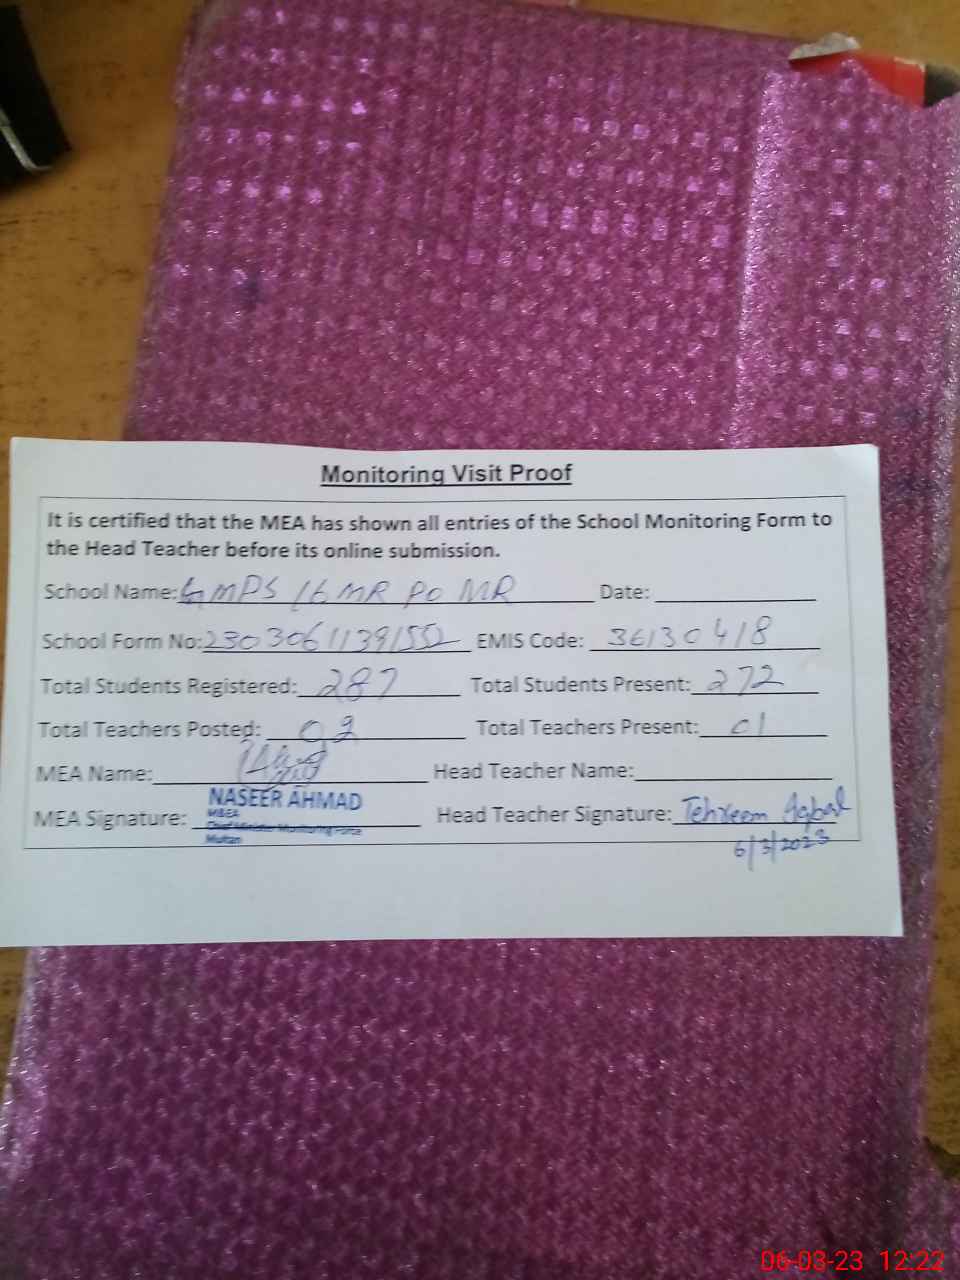 Monitoring Visit Proof
It is certified that the MEA has shown all entries of the School Monitoring Form to
the Head Teacher before its online submission.
School Name: GMPS 16 MR PO MR Date:
School Form No: 2303061139155 EMIS Code: 36130418
Total Students Registered: 287 Total Students Present: 272
Total Teachers Posted: 02 Total Teachers Present: 01
MEA Name: Head Teacher Name:
NASEER AHMAD
MEA Signature: Head Teacher Signature: Tehreem Iqbal
M&EA
Chief Minister Monitoring Force
Multan
6/3/2023
06-03-23 12:22